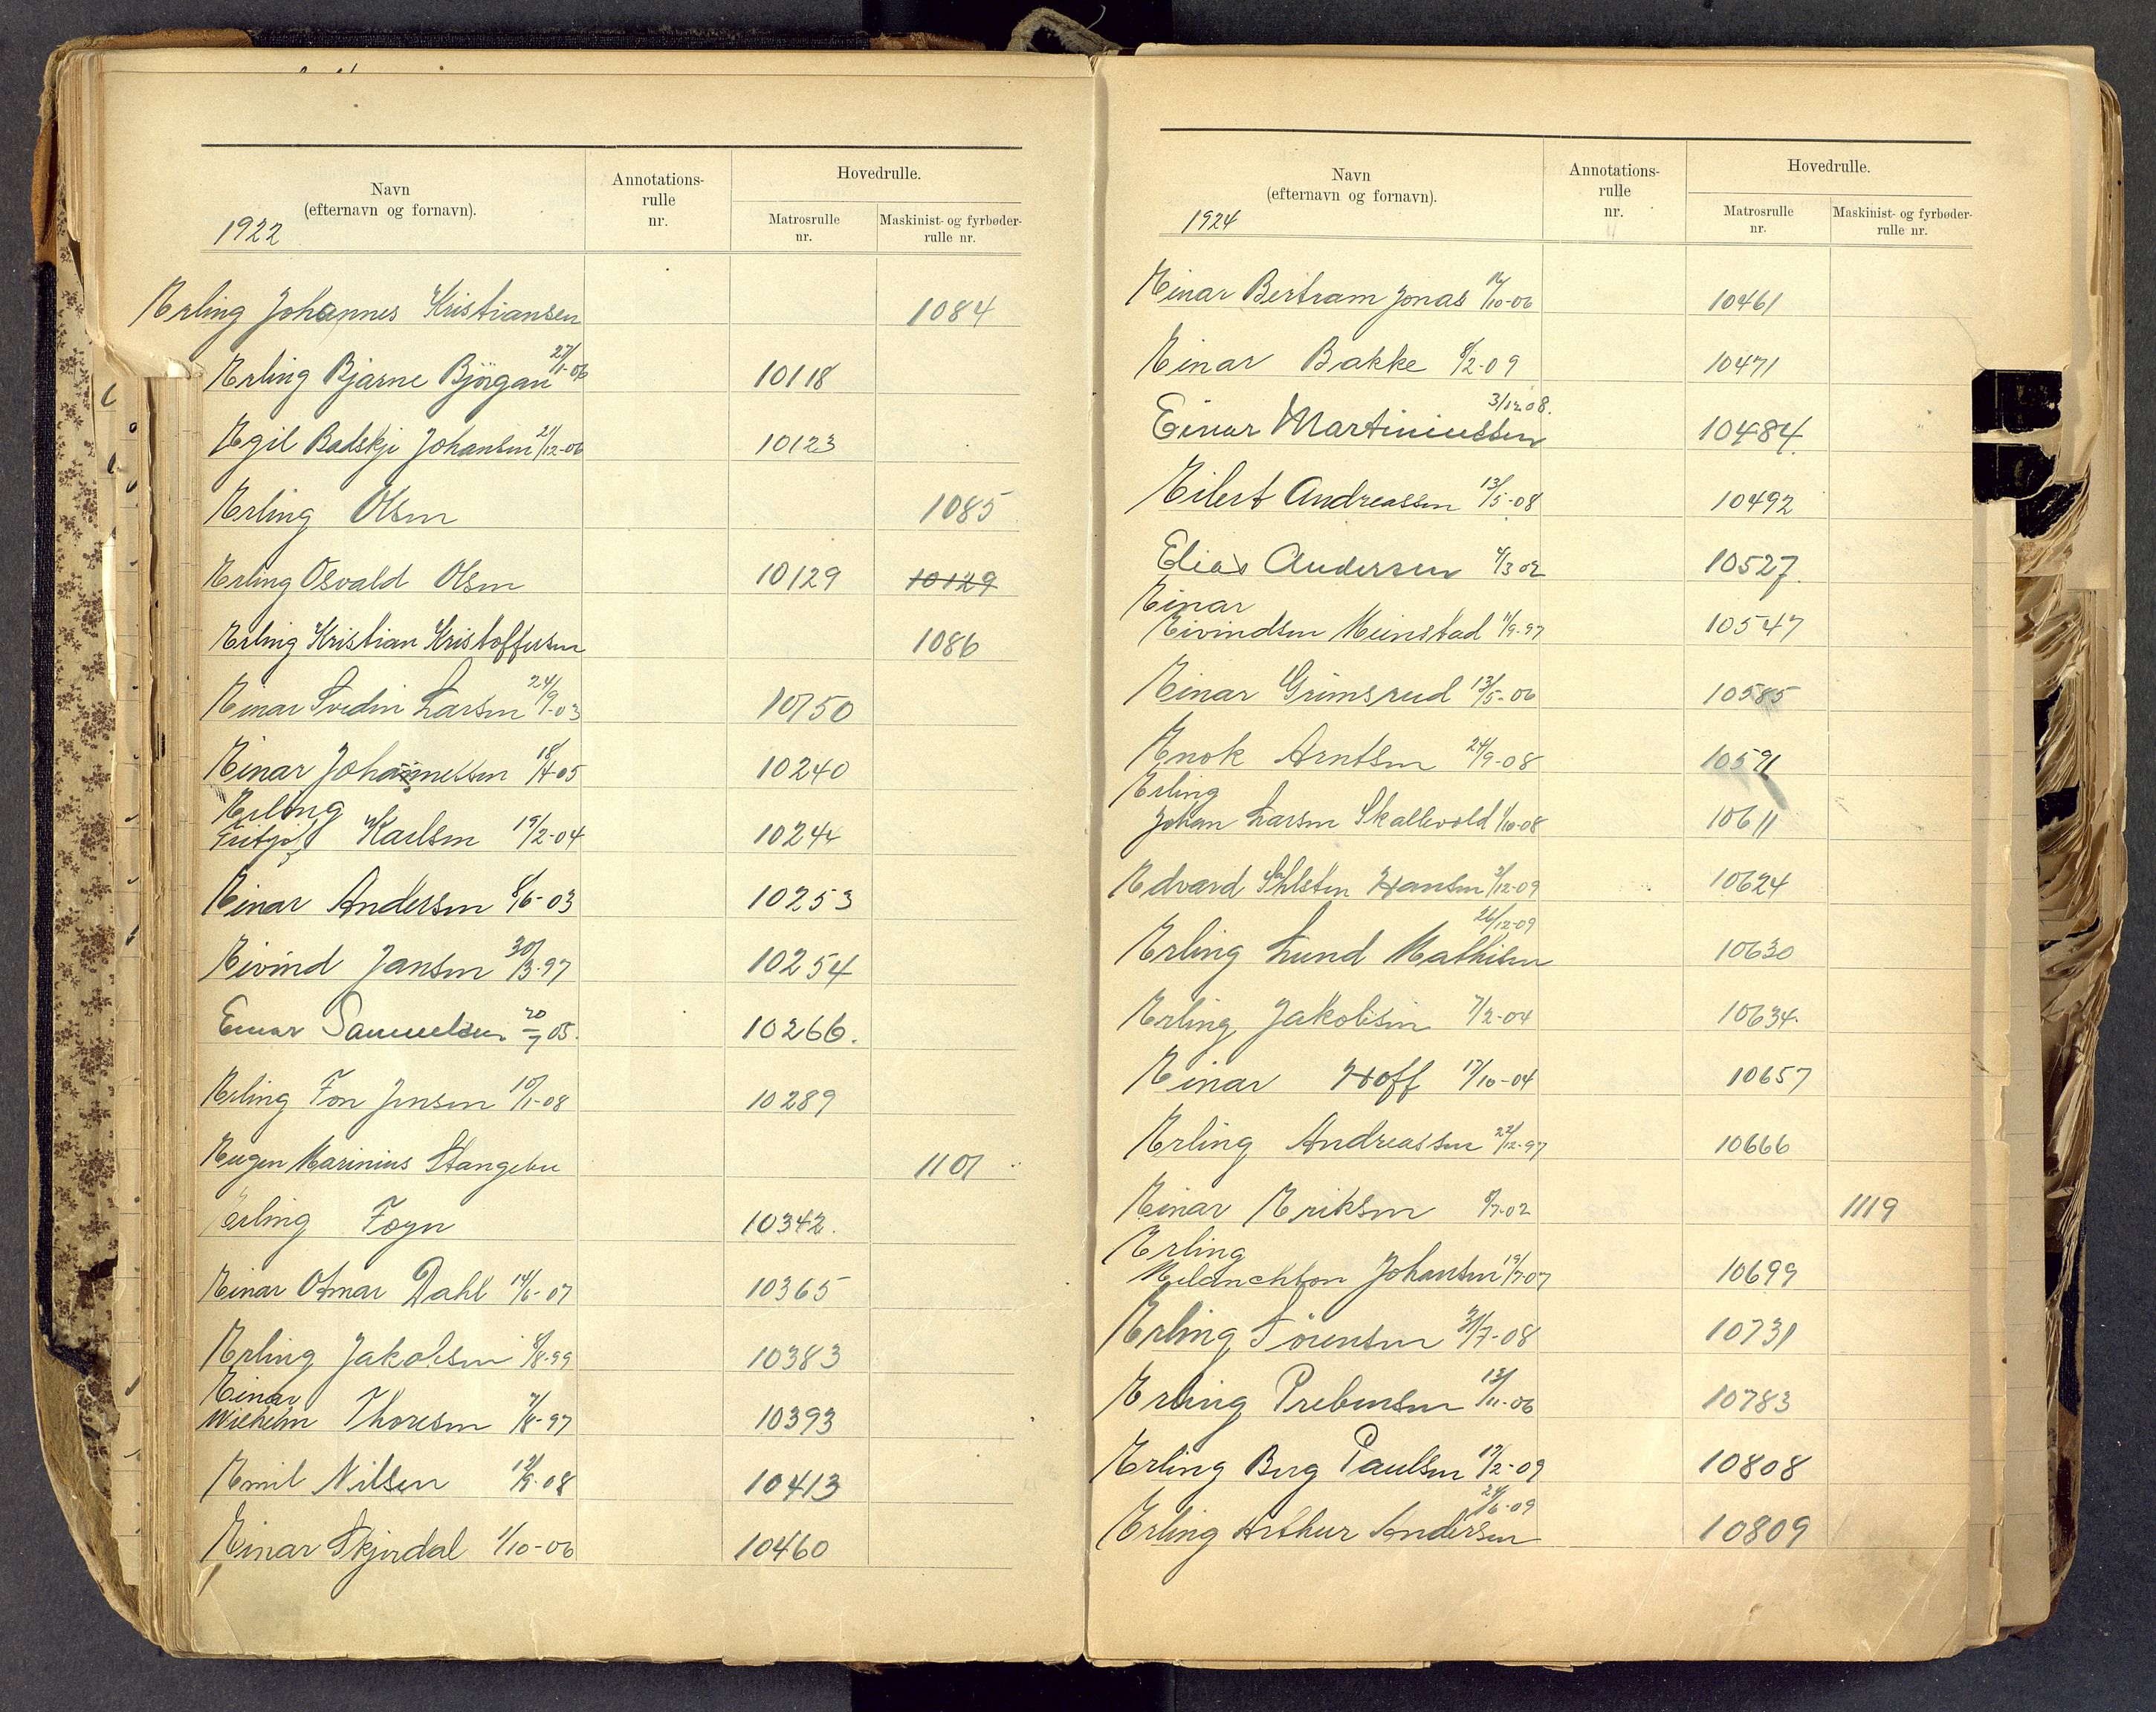 Navn
(efternavn og fornavn).
Annotations-
rulle
nr.
Hovedrulle.
Matrosrulle
nr.
Maskinist- og fyrbøder-
rulle nr.
1922
Erling Johannes Kristiansen 1084
Erling Bjarne Björgan 27/1-06 10118
Egil Badskji Johansen 21/12-06 10123
Erling Olsen 1085
Erling Osvald Olsen 10129 10129
Erling Kristian Kristoffersen 1086
Einar Svedin Larsen 24/9-03 10150
Einar Johannessen 18/4-05 10240
Erling
Fritjof Karlsen 19/2-04 10244
Einar Andersen 8/6-03 10253
Eivind Jansen 30/3-97 10254
Einar Samuelsen 20/7 05. 10266.
Erling Fon Jensen 10/1-08 10289
Eugen Marinius Stangebu 1101
Erling Foyn 10342.
Einar Otmar Dahl 14/6-07 10365
Erling Jakobsen 8/8-99 10383
Einar
Wilhelm Thoresen 7/8-97 10393
Emil Nilsen 12/9-08 10413
Einar Skjirdal 1/10-06 10460
Navn
(efternavn og fornavn).
Annotations-
rulle
nr.
Hovedrulle.
Matrosrulle
nr.
Maskinist- og fyrbøder-
rulle nr.
1924
Einar Bertram Jonas 12/10-06 10461
Einar Bakke 8/2-09 10471
3/12 08.
Einar Martiniussen 10484.
Eilert Andreassen 13/5-08 10492
Elias Andersen 4/3 02 10527.
Einar
Eivindsen Meinstad 11/9-97 10547
Einar Grimsrud 13/5-06 10585
Enok Arntsen 24/9-08 10591
Erling
Johan Larsen Skallevold 1/10-08 10611
Edvard Hansen 3/12-09 10624
26/12-09
Erling Lund Mathisen 10630
Erling Jakobsen 7/2-04 10634.
Einar Hoff 17/10-04 10657
Erling Andreassen 22/12-97 10666
Einar Eriksen 8/7-02 1119
Erling
Melanchton Johansen 19/7-07 10699
Erling Sörensen 31/7-08 10731
Erling Prebensen 13/11-06 10783
Erling Berg Paulsen 17/2-09 10808
24/6-09
Erling Arthur Andersen 10809